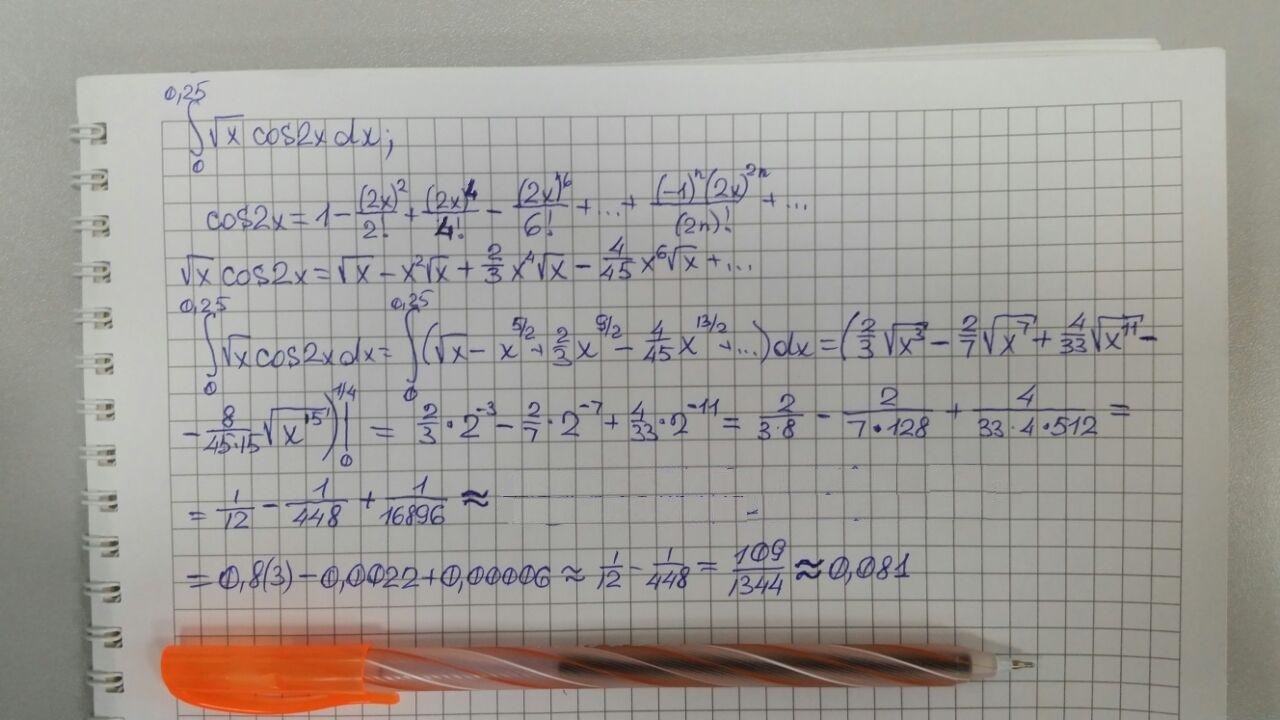 ∫₀^{0,25} √x cos2x dx;
cos2x = 1 - (2x)²/2! + (2x)⁴/4! - (2x)⁶/6! + ... + (-1)ⁿ(2x)²ⁿ/(2n)! + ...
√x cos2x = √x - x²√x + 2/3 x⁴√x - 4/45 x⁶√x + ...
∫₀^{0,25} √x cos2x dx = ∫₀^{0,25} (√x - x^{5/2} + 2/3 x^{9/2} - 4/45 x^{13/2} + ...) dx = (2/3 √x³ - 2/7 √x⁷ + 4/33 √x¹¹ -
- 8/(45·15) √x¹⁵)|₀^{1/4} = 2/3 · 2⁻³ - 2/7 · 2⁻⁷ + 4/33 · 2⁻¹¹ = 2/(3·8) - 2/(7·128) + 4/(33·4·512) =
= 1/12 - 1/448 + 1/16896 ≈
= 0,8(3) - 0,0022 + 0,00006 ≈ 1/12 - 1/448 = 109/1344 ≈ 0,081